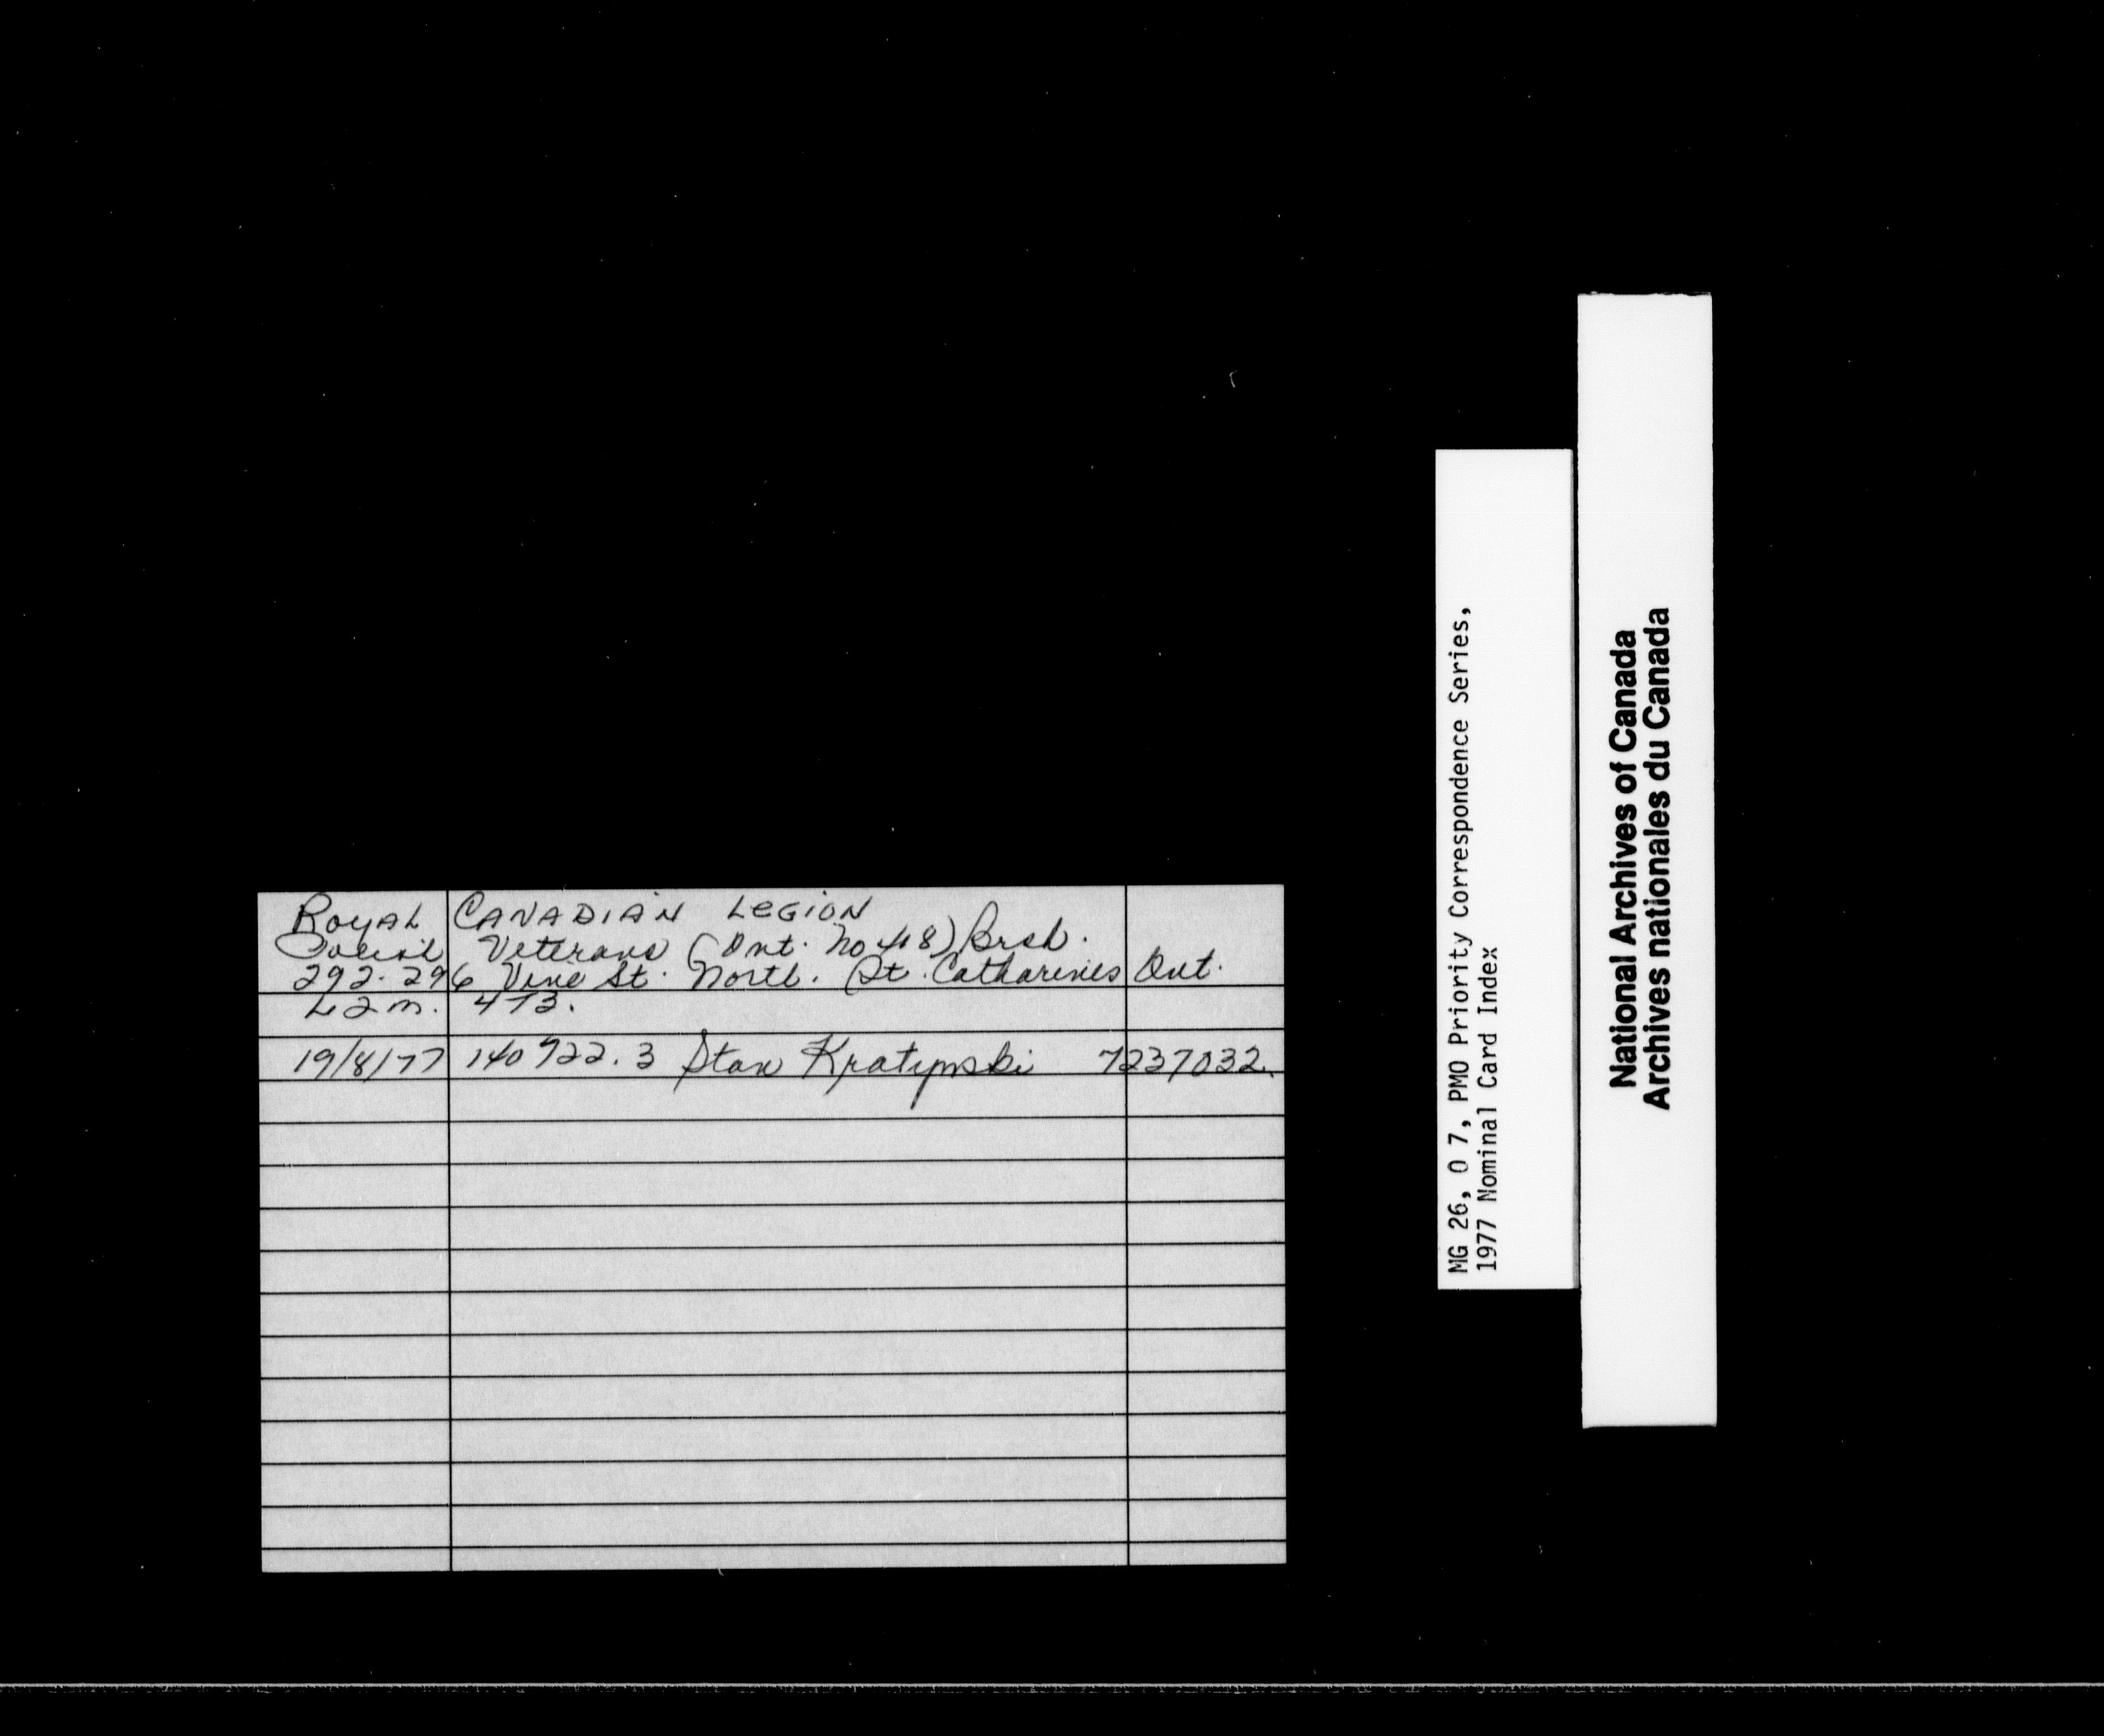 ROYAL CANADIAN LEGION
Polish Veterans (Ont. No 418) Brch.
292-296 Vine St. North. St. Catharines Ont.
L2M. 4T3.
19/8/77 140722.3 Stan 7237032.
MG 26, O 7, PMO Priority Correspondence Series,
1977 Nominal Card Index
National Archives of Canada
Archives nationales du Canada